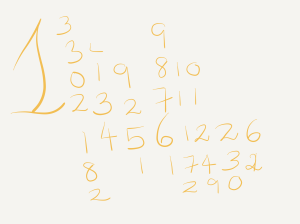 1 3 9
3 L 8 1 0
0 1 9 7 1 1
2 3 2
1 4 5 6 1 2 2 6
8 1 1 7 4 3 2
2 2 9 0